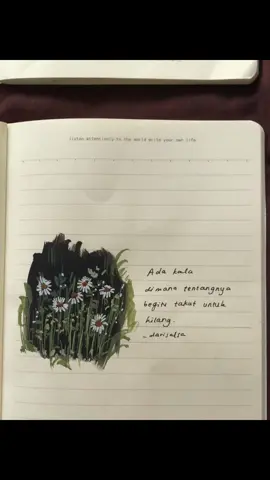 listen attentively to the world write your own life
Ada kala
dimana tentangnya
begitu takut untuk
hilang.
- darisalsa